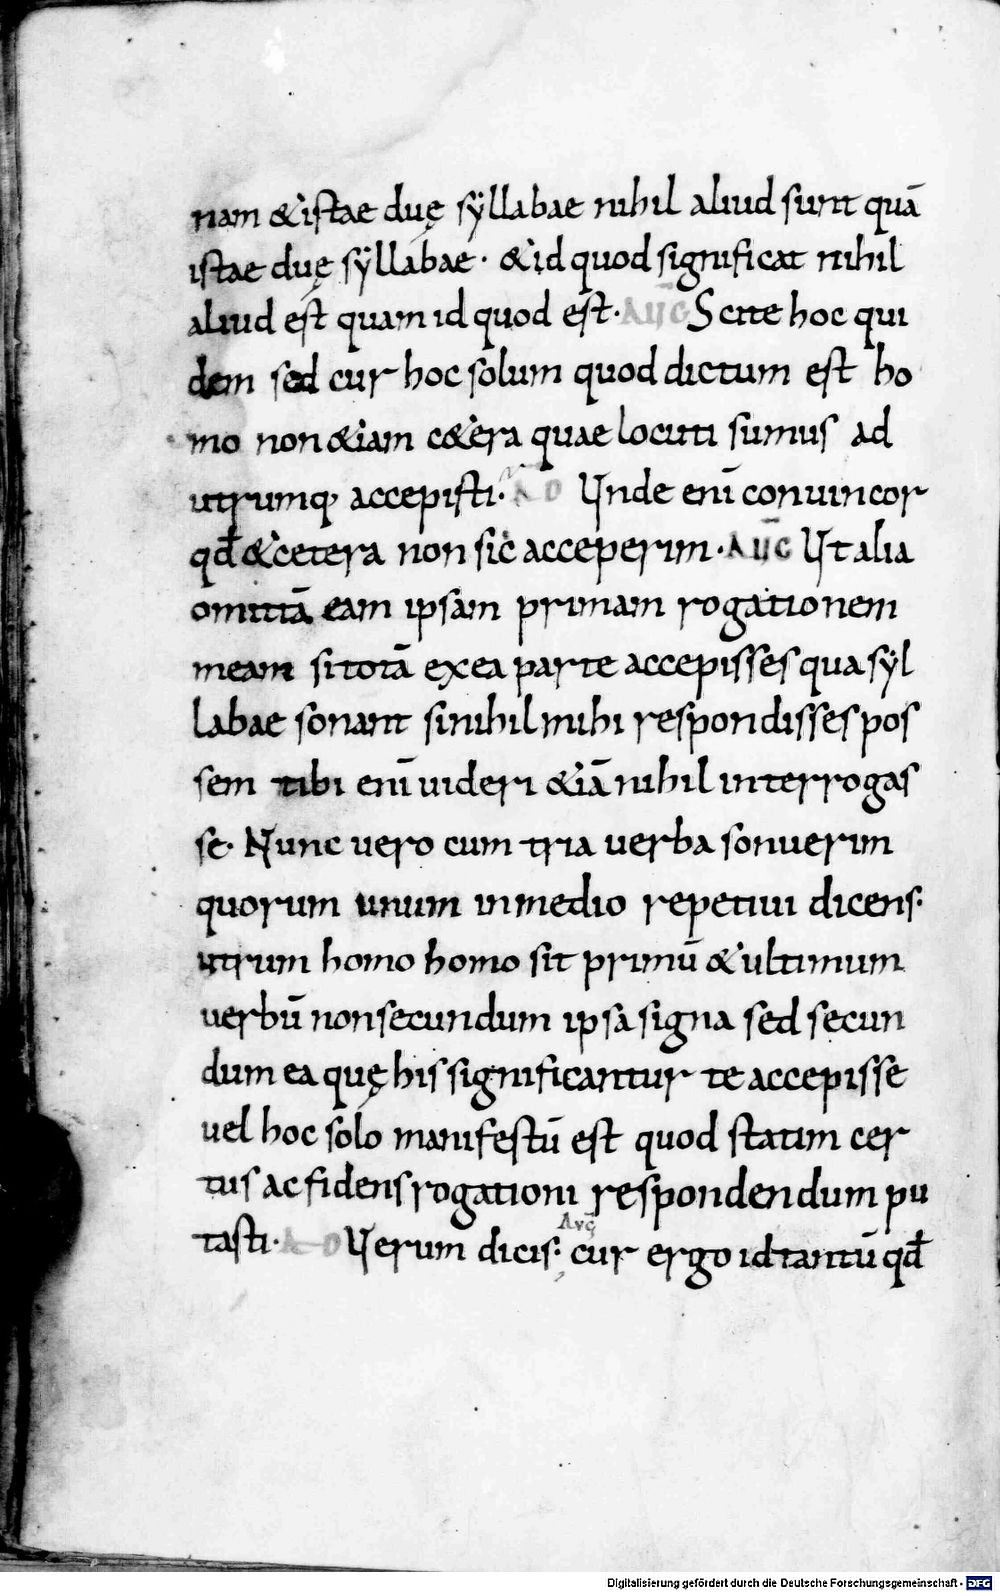 nam &istae duę sÿllabae nihil aliud sunt quā
istae duę sÿllabae · &id quod significat nihil
aliud est quam id quod est · AUḠ Scite hoc qui
dem sed cur hoc solum quod dictum est ho
mo non &iam c&era quae locuti sumus ad
utrumq; accepisti · AD Unde eni̅ conuincor
qd̄ &cetera non sic acceperim · AUḠ Ut alia
omittā eam ipsam primam rogationem
meam si totā ex ea parte accepisses qua sÿl
labae sonant si nihil mihi respondisses pos
sem tibi eni̅ uideri &iā nihil interrogas
se · Nunc vero cum tria verba sonuerim
quorum unum in medio repetiui dicens ·
utrum homo homo sit primū & ultimum
verbū non secundum ipsa signa sed secun
dum ea quę his significantur te accepisse
uel hoc solo manifestū est quod statim cer
tus ac fidens rogationi respondendum pu
tasti · AD Verum dicis : AVḠ cur ergo id tantū qd̄
Digitalisierung gefördert durch die Deutsche Forschungsgemeinschaft - DFG